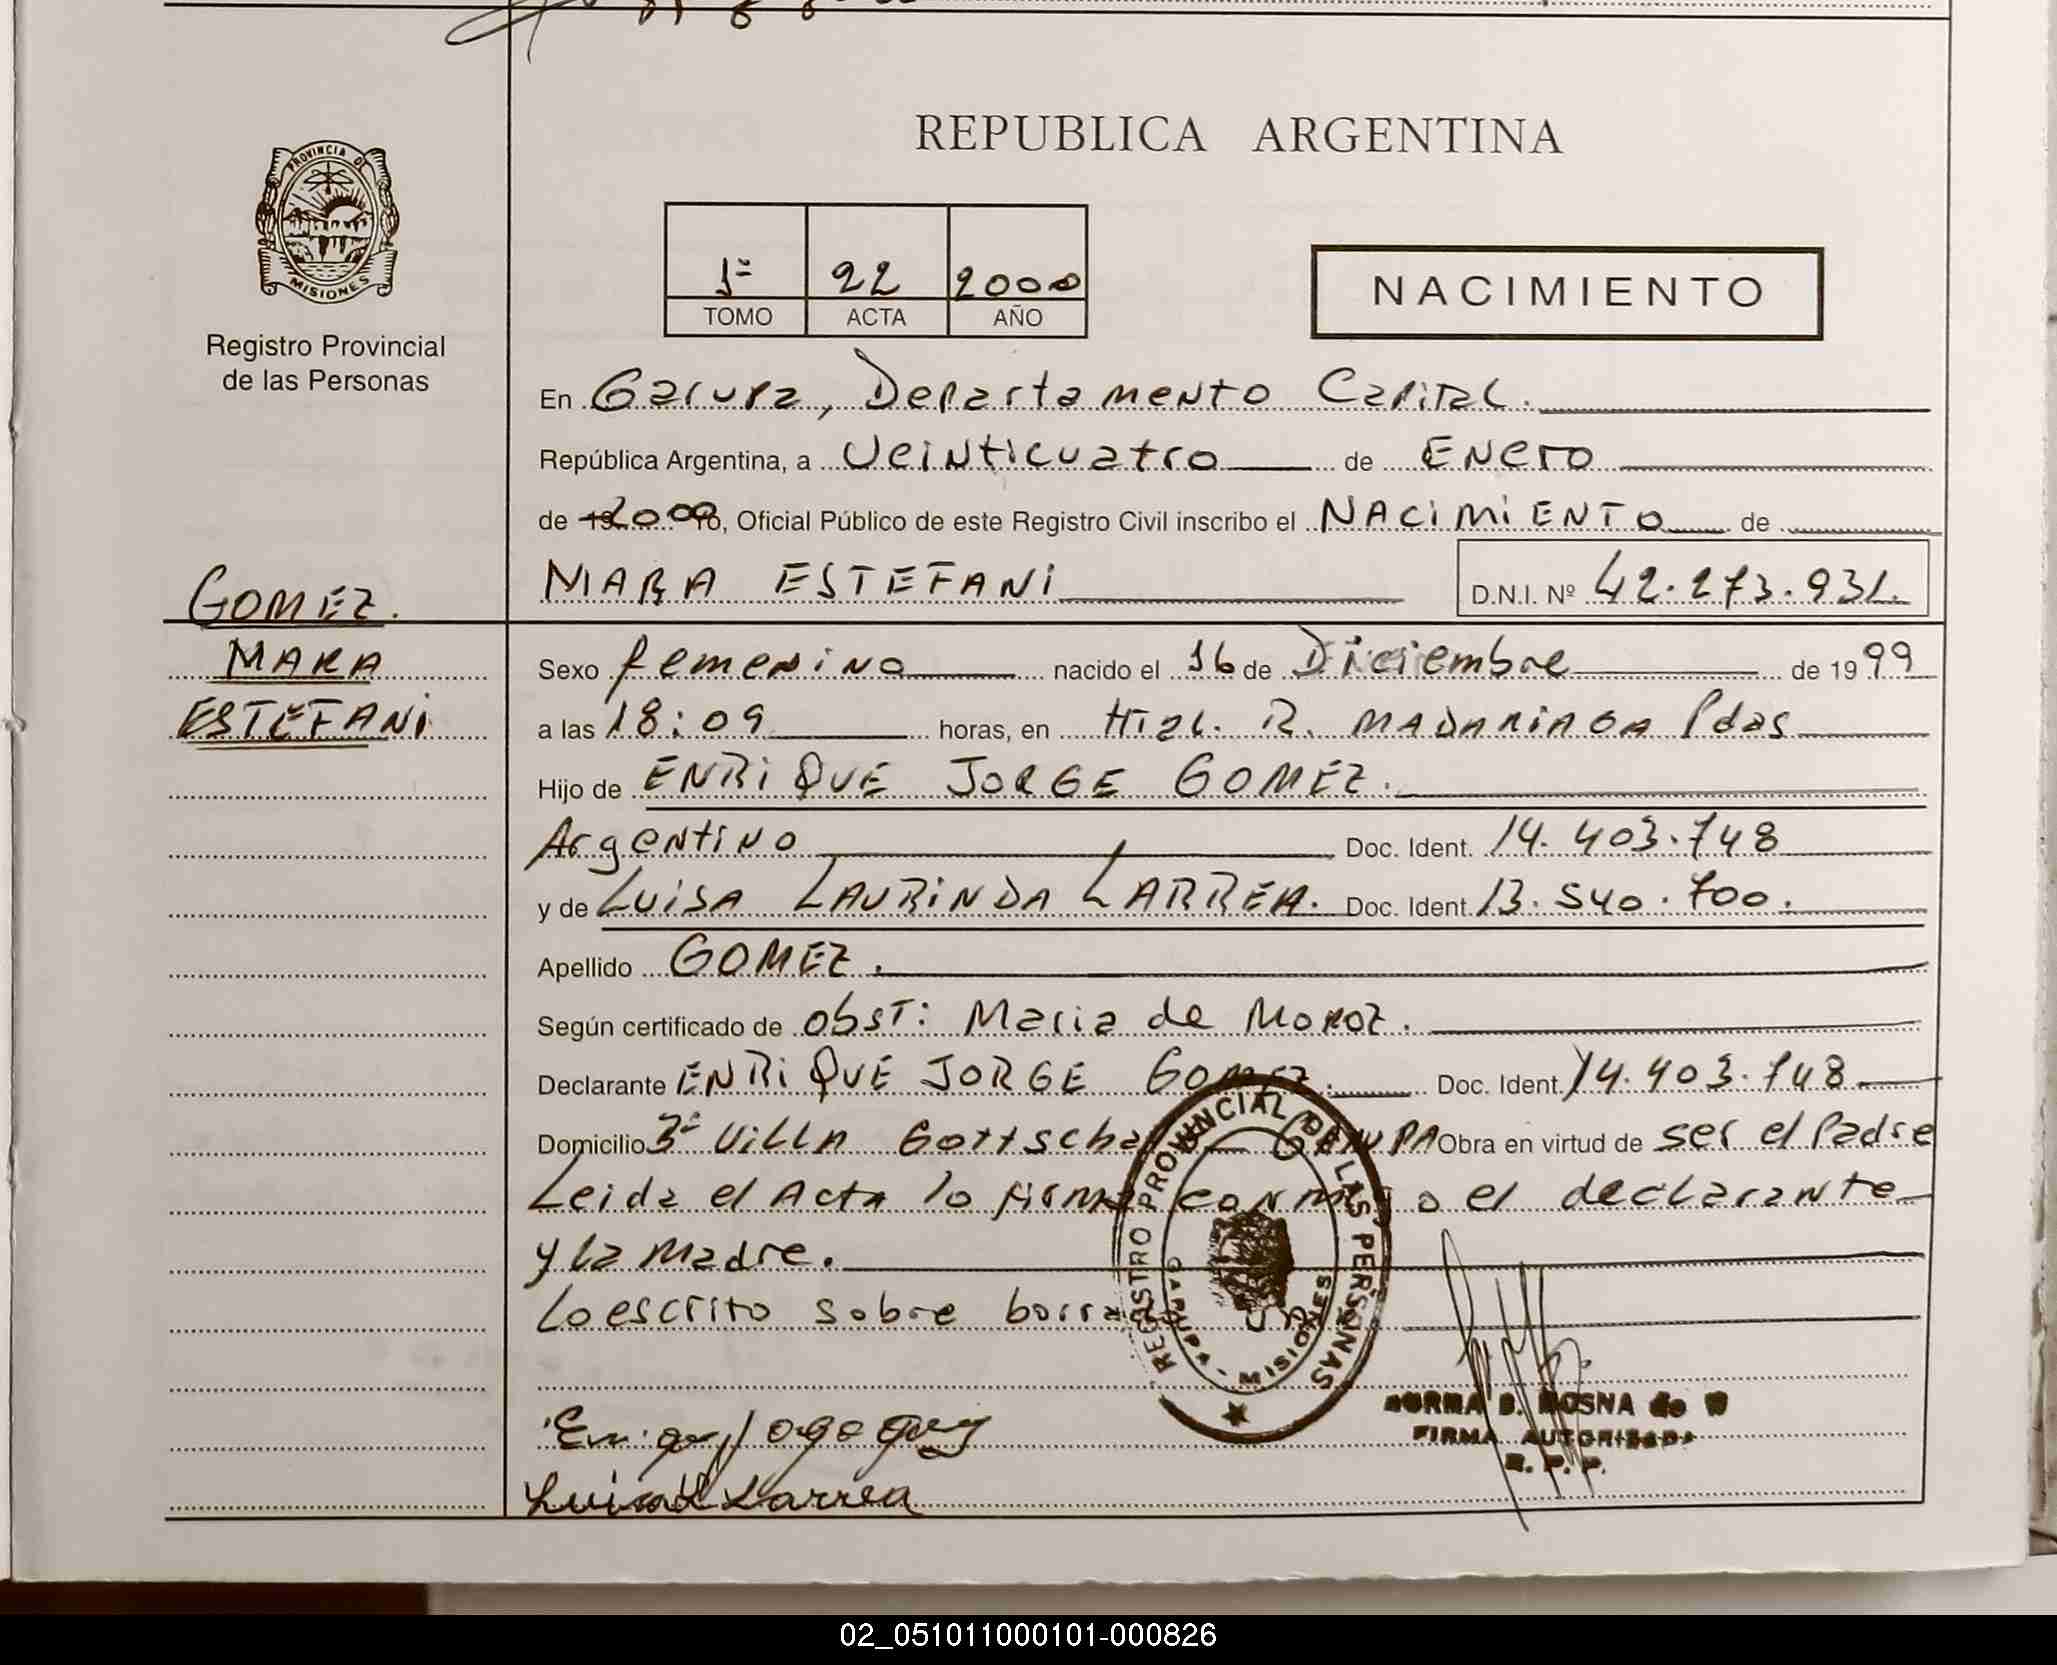 PROVINCIA DE
MISIONES
Registro Provincial
de las Personas
REPUBLICA ARGENTINA
1º 22 2000
TOMO ACTA AÑO
NACIMIENTO
En Garupa, Departamento Capital.
República Argentina, a Veinticuatro de Enero
de 2000, Oficial Público de este Registro Civil inscribo el NACIMIENTO de
MARA ESTEFANI D.N.I. Nº 42.273.931.
GOMEZ.
MARA
ESTEFANI
Sexo femenino nacido el 16 de Diciembre de 1999
a las 18:09 horas, en Hzal. R. MADARIAGA Pdas
Hijo de ENRIQUE JORGE GOMEZ.
Argentino Doc. Ident. 14.403.748
y de LUISA LAURINDA LARREA. Doc. Ident. 13.540.700.
Apellido GOMEZ.
Según certificado de obst: Maria de Moroz.
Declarante ENRIQUE JORGE GOMEZ. Doc. Ident. 14.403.748
Domicilio 3º Villa GARUPA Obra en virtud de ser el Padre
Leida el Acta lo firma conmigo el declarante
y la Madre.
Lo escrito sobre
REGISTRO PROVINCIAL DE LAS PERSONAS
MISIONES
NORMA B. MOSNA de
FIRMA AUTORIZADA
R. P. P.
Luisa L Larrea
02_051011000101-000826